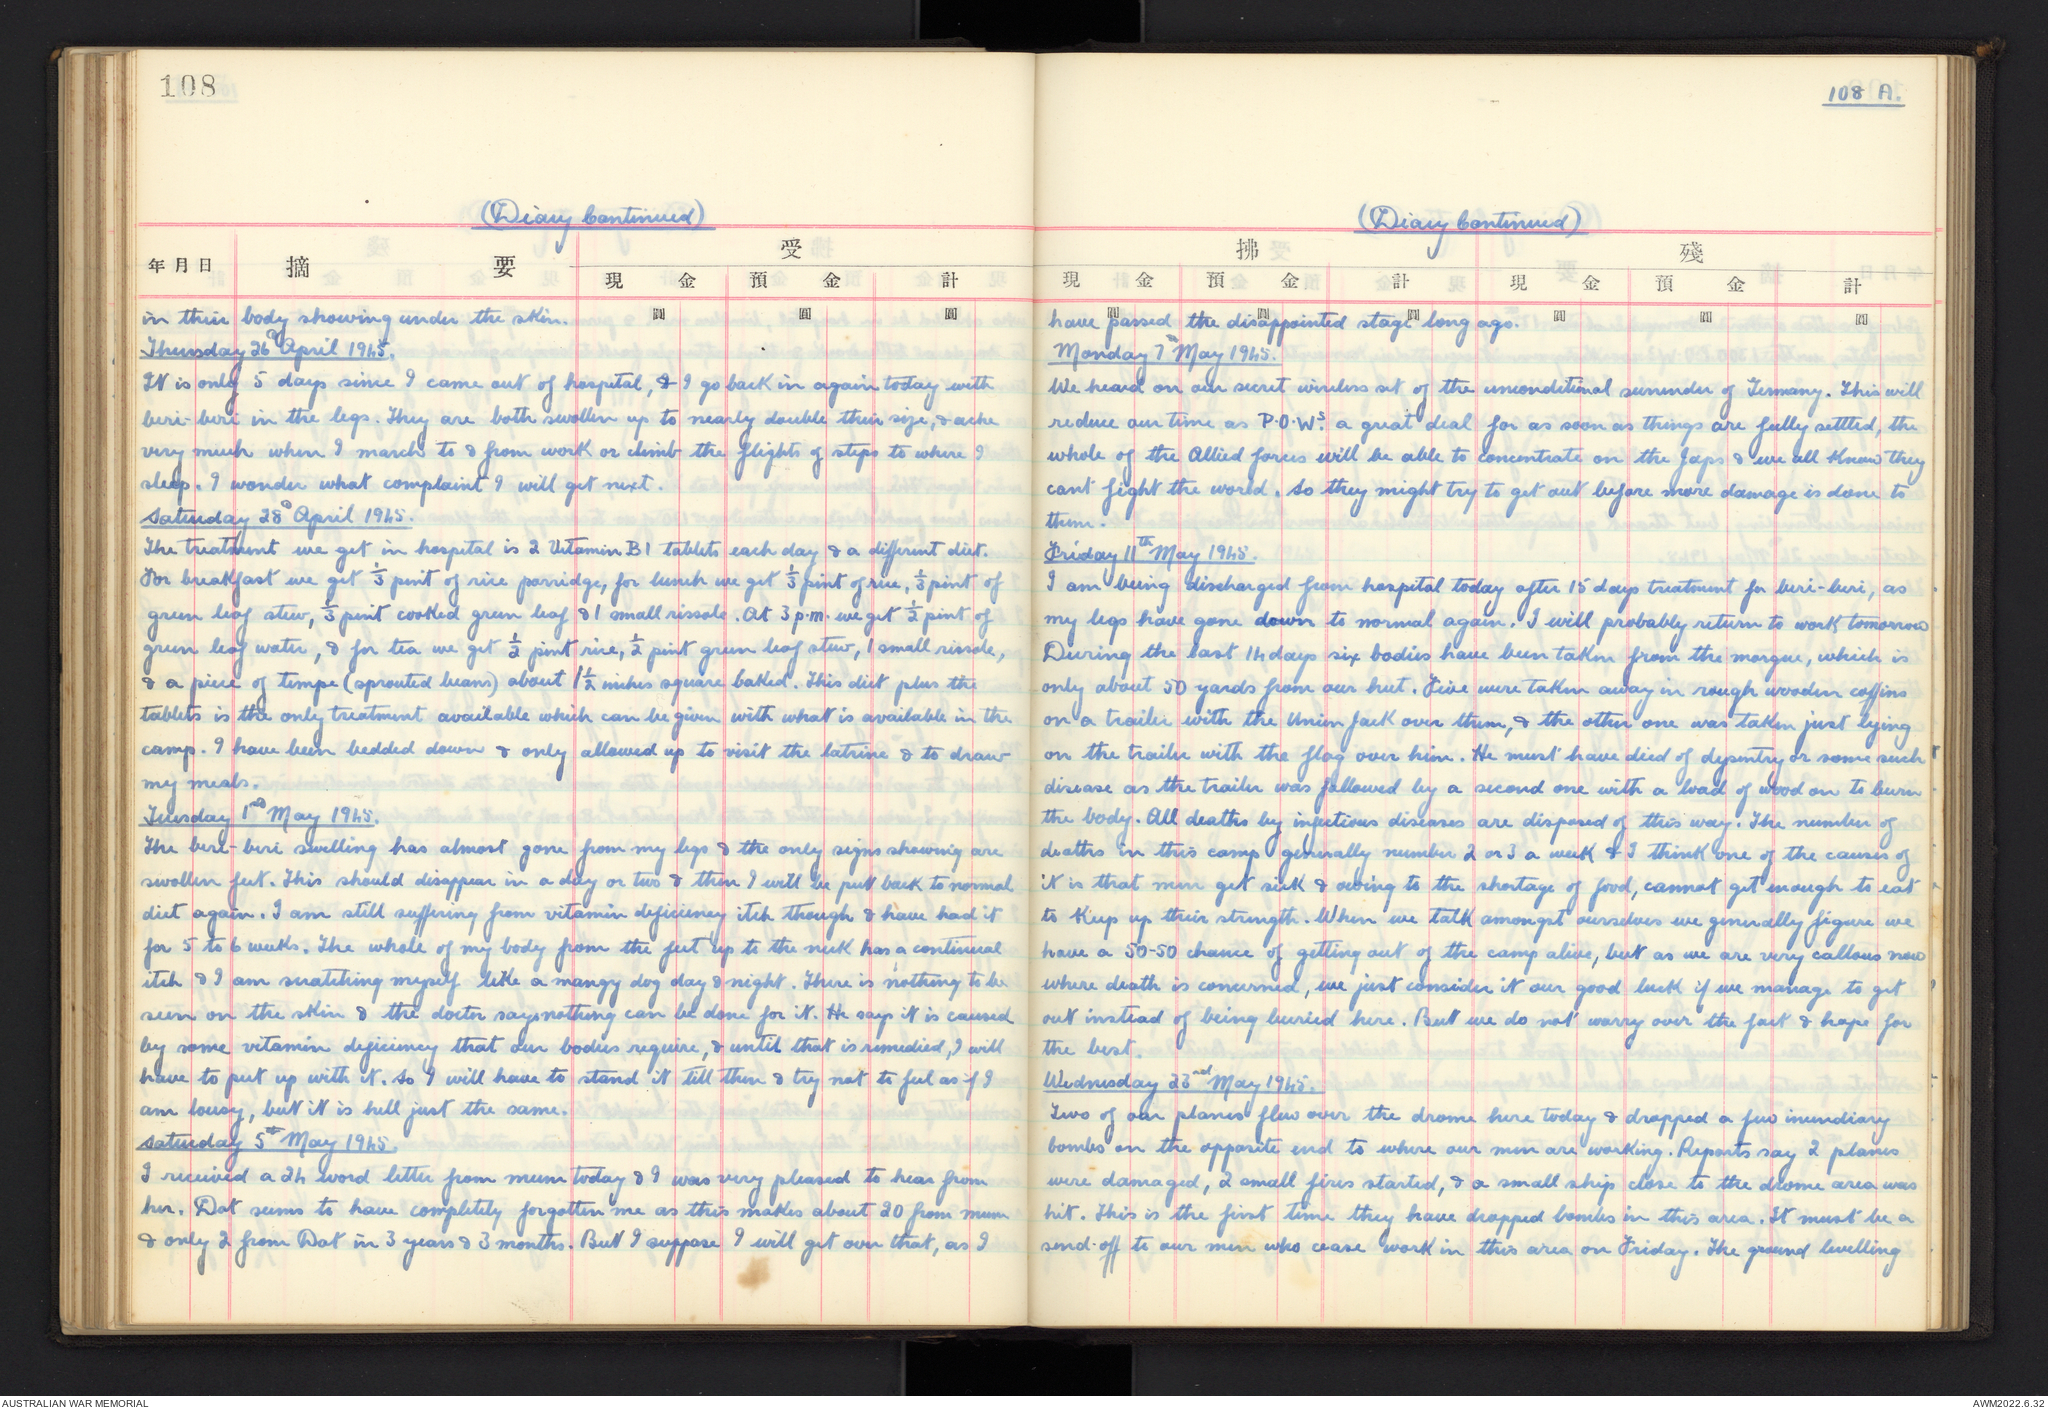 108
(Diary Continued)
受
年月日 摘 要 現 金 預 金 計
圓 圓 圓
in their body showing under the skin.
Thursday 26th April 1945.
It is only 5 days since I came out of hospital, & I go back in again today with
beri-beri in the legs. They are both swollen up to nearly double their size, & ache
very much when I march to & from work or climb the flights of steps to where I
sleep. I wonder what complaint I will get next.
Saturday 28th April 1945.
The treatment we get in hospital is 2 Vitamin B1 tablets each day & a different diet.
For breakfast we get 1/3 pint of rice porridge, for lunch we get 1/3 pint of rice, 1/3 pint of
green leaf stew, 1/3 pint cooked green leaf & 1 small rissole. At 3 p.m. we get 1/2 pint of
green leaf water, & for tea we get 1/2 pint rice, 1/2 pint green leaf stew, 1 small rissole,
& a piece of tempe (sprouted beans) about 1 1/2 inches square baked. This diet plus the
tablets is the only treatment available which can be given with what is available in the
camp. I have been bedded down & only allowed up to visit the latrine & to draw
my meals.
Tuesday 1st May 1945.
The beri-beri swelling has almost gone from my legs & the only signs showing are
swollen feet. This should disappear in a day or two & then I will be put back to normal
diet again. I am still suffering from vitamin deficiency itch though & have had it
for 5 to 6 weeks. The whole of my body from the feet up to the neck has a continual
itch & I am scratching myself like a mangy dog day & night. There is nothing to be
seen on the skin & the doctor says nothing can be done for it. He says it is caused
by some vitamin deficiency that our bodies require, & until that is remedied, I will
have to put up with it. So I will have to stand it till then & try not to feel as if I
am lousy, but it is hell just the same.
Saturday 5th May 1945.
I received a 24 word letter from mum today & I was very pleased to hear from
her. Dot seems to have completly forgotten me as this makes about 20 from mum
& only 2 from Dot in 3 years & 3 months. But I suppose I will get over that, as I
108 A.
(Diary Continued)
拂 殘
現 金 預 金 計 現 金 預 金 計
圓 圓 圓 圓 圓 圓
have passed the disappointed stage long ago.
Monday 7th May 1945.
We heard on our secret wireless set of the unconditional surrender of Germany. This will
reduce our time as P.O.Ws. a great deal for as soon as things are fully settled, the
whole of the Allied forces will be able to concentrate on the Japs & we all know they
cant fight the world. So they might try to get out before more damage is done to
them.
Friday 11th May 1945.
I am being discharged from hospital today after 15 days treatment for beri-beri, as
my legs have gone down to normal again. I will probably return to work tomorrow
During the last 14 days six bodies have been taken from the morgue, which is
only about 50 yards from our hut. Five were taken away in rough wooden coffins
on a trailer with the Union Jack over them, & the other one was taken just lying
on the trailer with the flag over him. He must have died of dysentry or some such
disease as the trailer was followed by a second one with a load of wood on to burn
the body. All deaths by infectious diseases are disposed of this way. The number of
deaths in this camp generally number 2 or 3 a week & I think one of the causes of
it is that men get sick & owing to the shortage of food, cannot get enough to eat
to keep up their strength. When we talk amongst ourselves we generally figure we
have a 50-50 chance of getting out of the camp alive, but as we are very callous now
where death is concerned, we just consider it our good luck if we manage to get
out instead of being buried here. But we do not worry over the fact & hope for
the best.
Wednesday 23nd May 1945.
Two of our planes flew over the drome here today & dropped a few incendiary
bombs on the opposite end to where our men are working. Reports say 2 planes
were damaged, 2 small fires started, & a small ship close to the drome area was
hit. This is the first time they have dropped bombs in this area. It must be a
send-off to our men who cease work in this area on Friday. The ground levelling
AUSTRALIAN WAR MEMORIAL
AWM2022.6.32